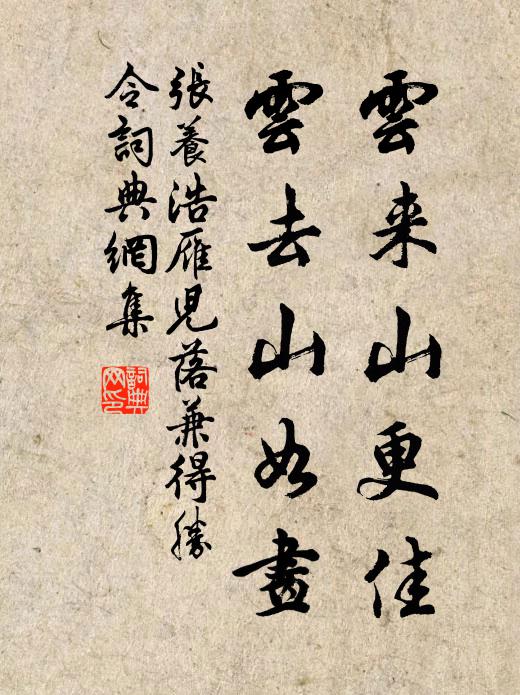 雲来山更佳
雲去山如畫
張養浩雁児落兼得勝
令詞典網集
詞典
网印